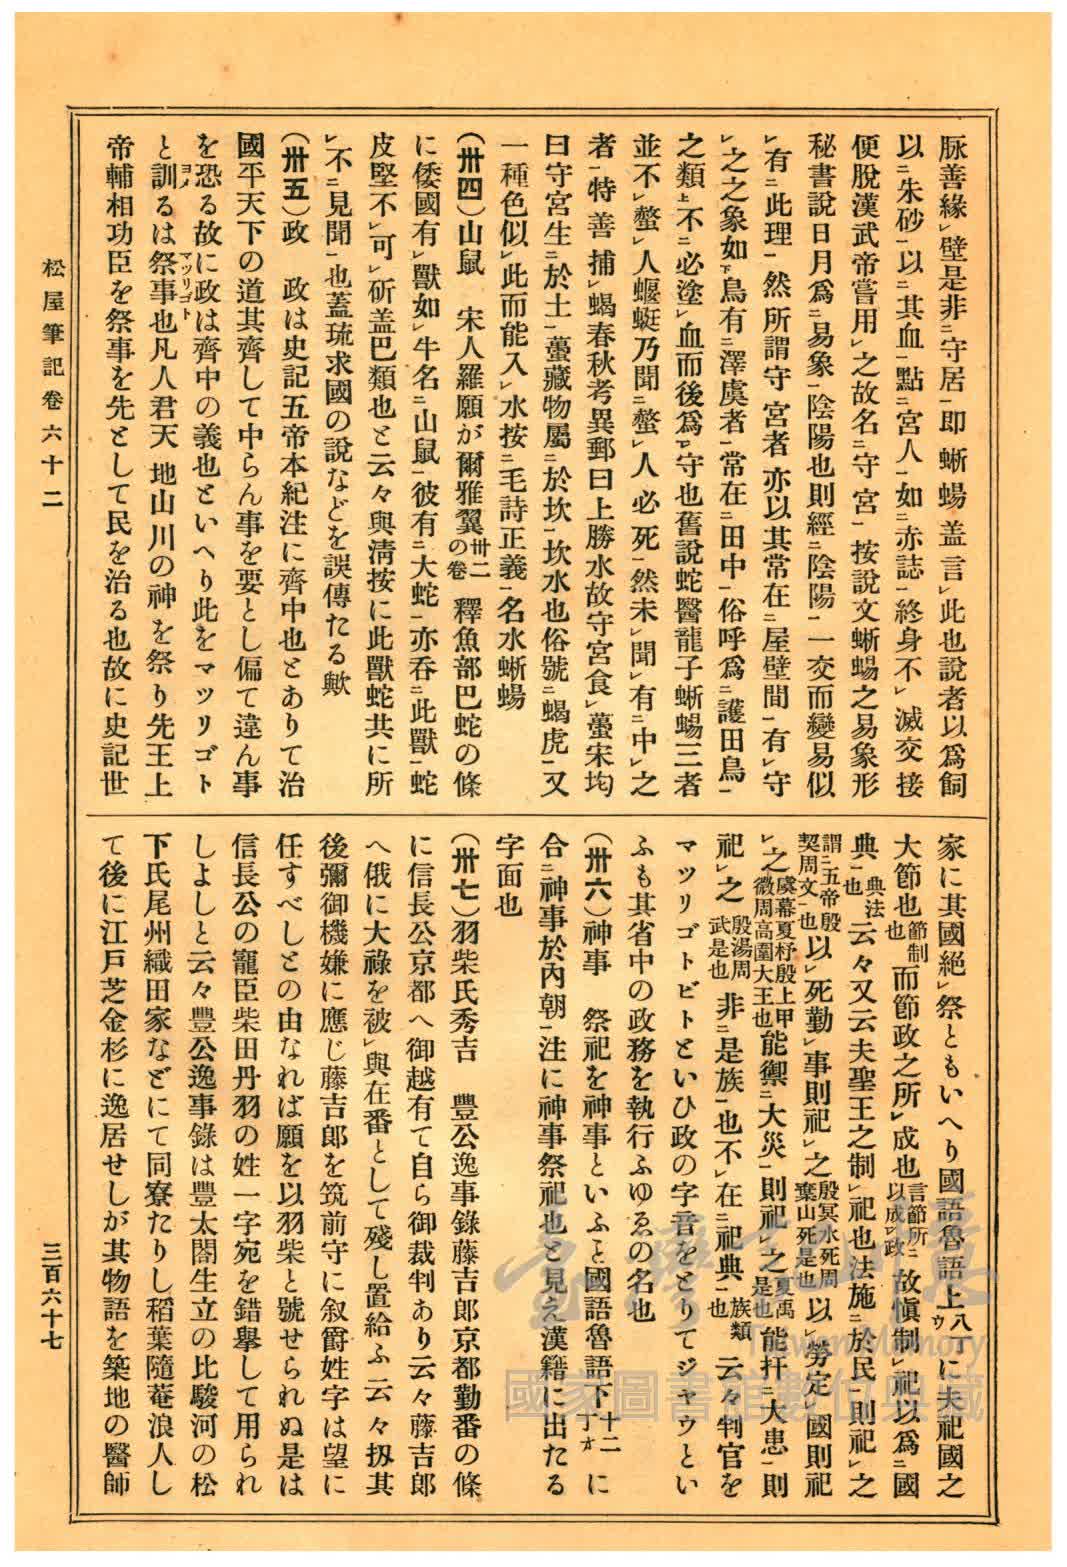 脉善緣㆑壁是非㆓守居㆒即蜥蜴盖言㆑此也說者以爲飼
以㆓朱砂㆒以㆓其血㆒點㆓宮人㆒如㆓赤誌㆒終身不㆑滅交接
便脫漢武帝嘗用㆑之故名㆓守宮㆒按說文蜥蜴之易象形
秘書說日月爲㆓易象㆒陰陽也則經㆓陰陽㆒一交而變易似
㆑有㆓此理㆒然所謂守宮者亦以其常在㆓屋壁間㆒有㆑守
㆑之之象如㆘鳥有㆓澤虞者㆒常在㆓田中㆒俗呼爲㆓護田鳥㆒
之類㆖不㆓必塗㆑血而後爲㆑守也舊說蛇醫龍子蜥蜴三者
並不㆑螫㆑人蝘蜓乃聞㆓螫㆑人必死㆒然未㆑聞㆑有㆓中㆑之
者㆒特善捕㆑蝎春秋考異郵曰上勝水故守宮食㆑蠆宋均
曰守宮生㆓於土㆒蠆藏物屬㆓於坎㆒坎水也俗號㆓蝎虎㆒又
一種色似㆑此而能入㆑水按㆓毛詩正義㆒名水蜥蜴
(卅四)山鼠　宋人羅願が爾雅翼卅二の卷釋魚部巴蛇の條
に倭國有㆑獸如㆑牛名㆓山鼠㆒彼有㆓大蛇㆒亦吞㆓此獸㆒蛇
皮堅不㆑可㆑斫盖巴類也と云々與淸按に此獸蛇共に所
㆑不㆓見聞㆒也蓋琉求國の說などを誤傳たる歟
(卅五)政　政は史記五帝本紀注に齊中也とありて治
國平天下の道其齊して中らん事を要とし偏て違ん事
を恐る故に政は齊中の義也といへり此をマツリゴト
と訓ヨメるは祭事マツリゴト也凡人君天地山川の神を祭り先王上
帝輔相功臣を祭事を先として民を治る也故に史記世
家に其國絕㆑祭ともいへり國語魯語上八丁ウに夫祀國之
大節也節制也而節政之所㆑成也言節所㆓以成㆒㆑政故愼制㆑祀以爲㆓國
典㆒典法也云々又云夫聖王之制㆑祀也法施㆓於民㆒則祀㆑之
謂㆓五帝殷契周文㆒也以㆑死勤㆑事則祀㆑之殷冥水死周棄山死是也以㆑勞定㆑國則祀
㆑之虞幕夏杼殷上甲微周高圉大王也能禦㆓大災㆒則祀㆑之夏禹是也能扞㆓大患㆒則
祀㆑之殷湯周武是也非㆓是族㆒也不㆑在㆓祀典㆒族類也云々判官を
マツリゴトビトといひ政の字音をとりてジヤウとい
ふも其省中の政務を執行ふゆゑの名也
(卅六)神事　祭祀を神事といふと國語魯語下十二丁オに
合㆓神事於內朝㆒注に神事祭祀也と見え漢籍に出たる
字面也
(卅七)羽柴氏秀吉　豐公逸事錄藤吉郞京都勤番の條
に信長公京都へ御越有て自ら御裁判あり云々藤吉郞
へ俄に大祿を被㆑與在番として殘し置給ふ云々扨其
後彌御機嫌に應じ藤吉郞を筑前守に叙爵姓字は望に
任すべしとの由なれば願を以羽柴と號せられぬ是は
信長公の寵臣柴田丹羽の姓一字宛を錯擧して用られ
しよしと云々豐公逸事錄は豐太閤生立の比駿河の松
下氏尾州織田家などにて同寮たりし稻葉隨菴浪人し
て後に江戸芝金杉に逸居せしが其物語を築地の醫師
松屋筆記卷六十二
三百六十七
臺灣記憶
Taiwan Memory
國家圖書館數位典藏